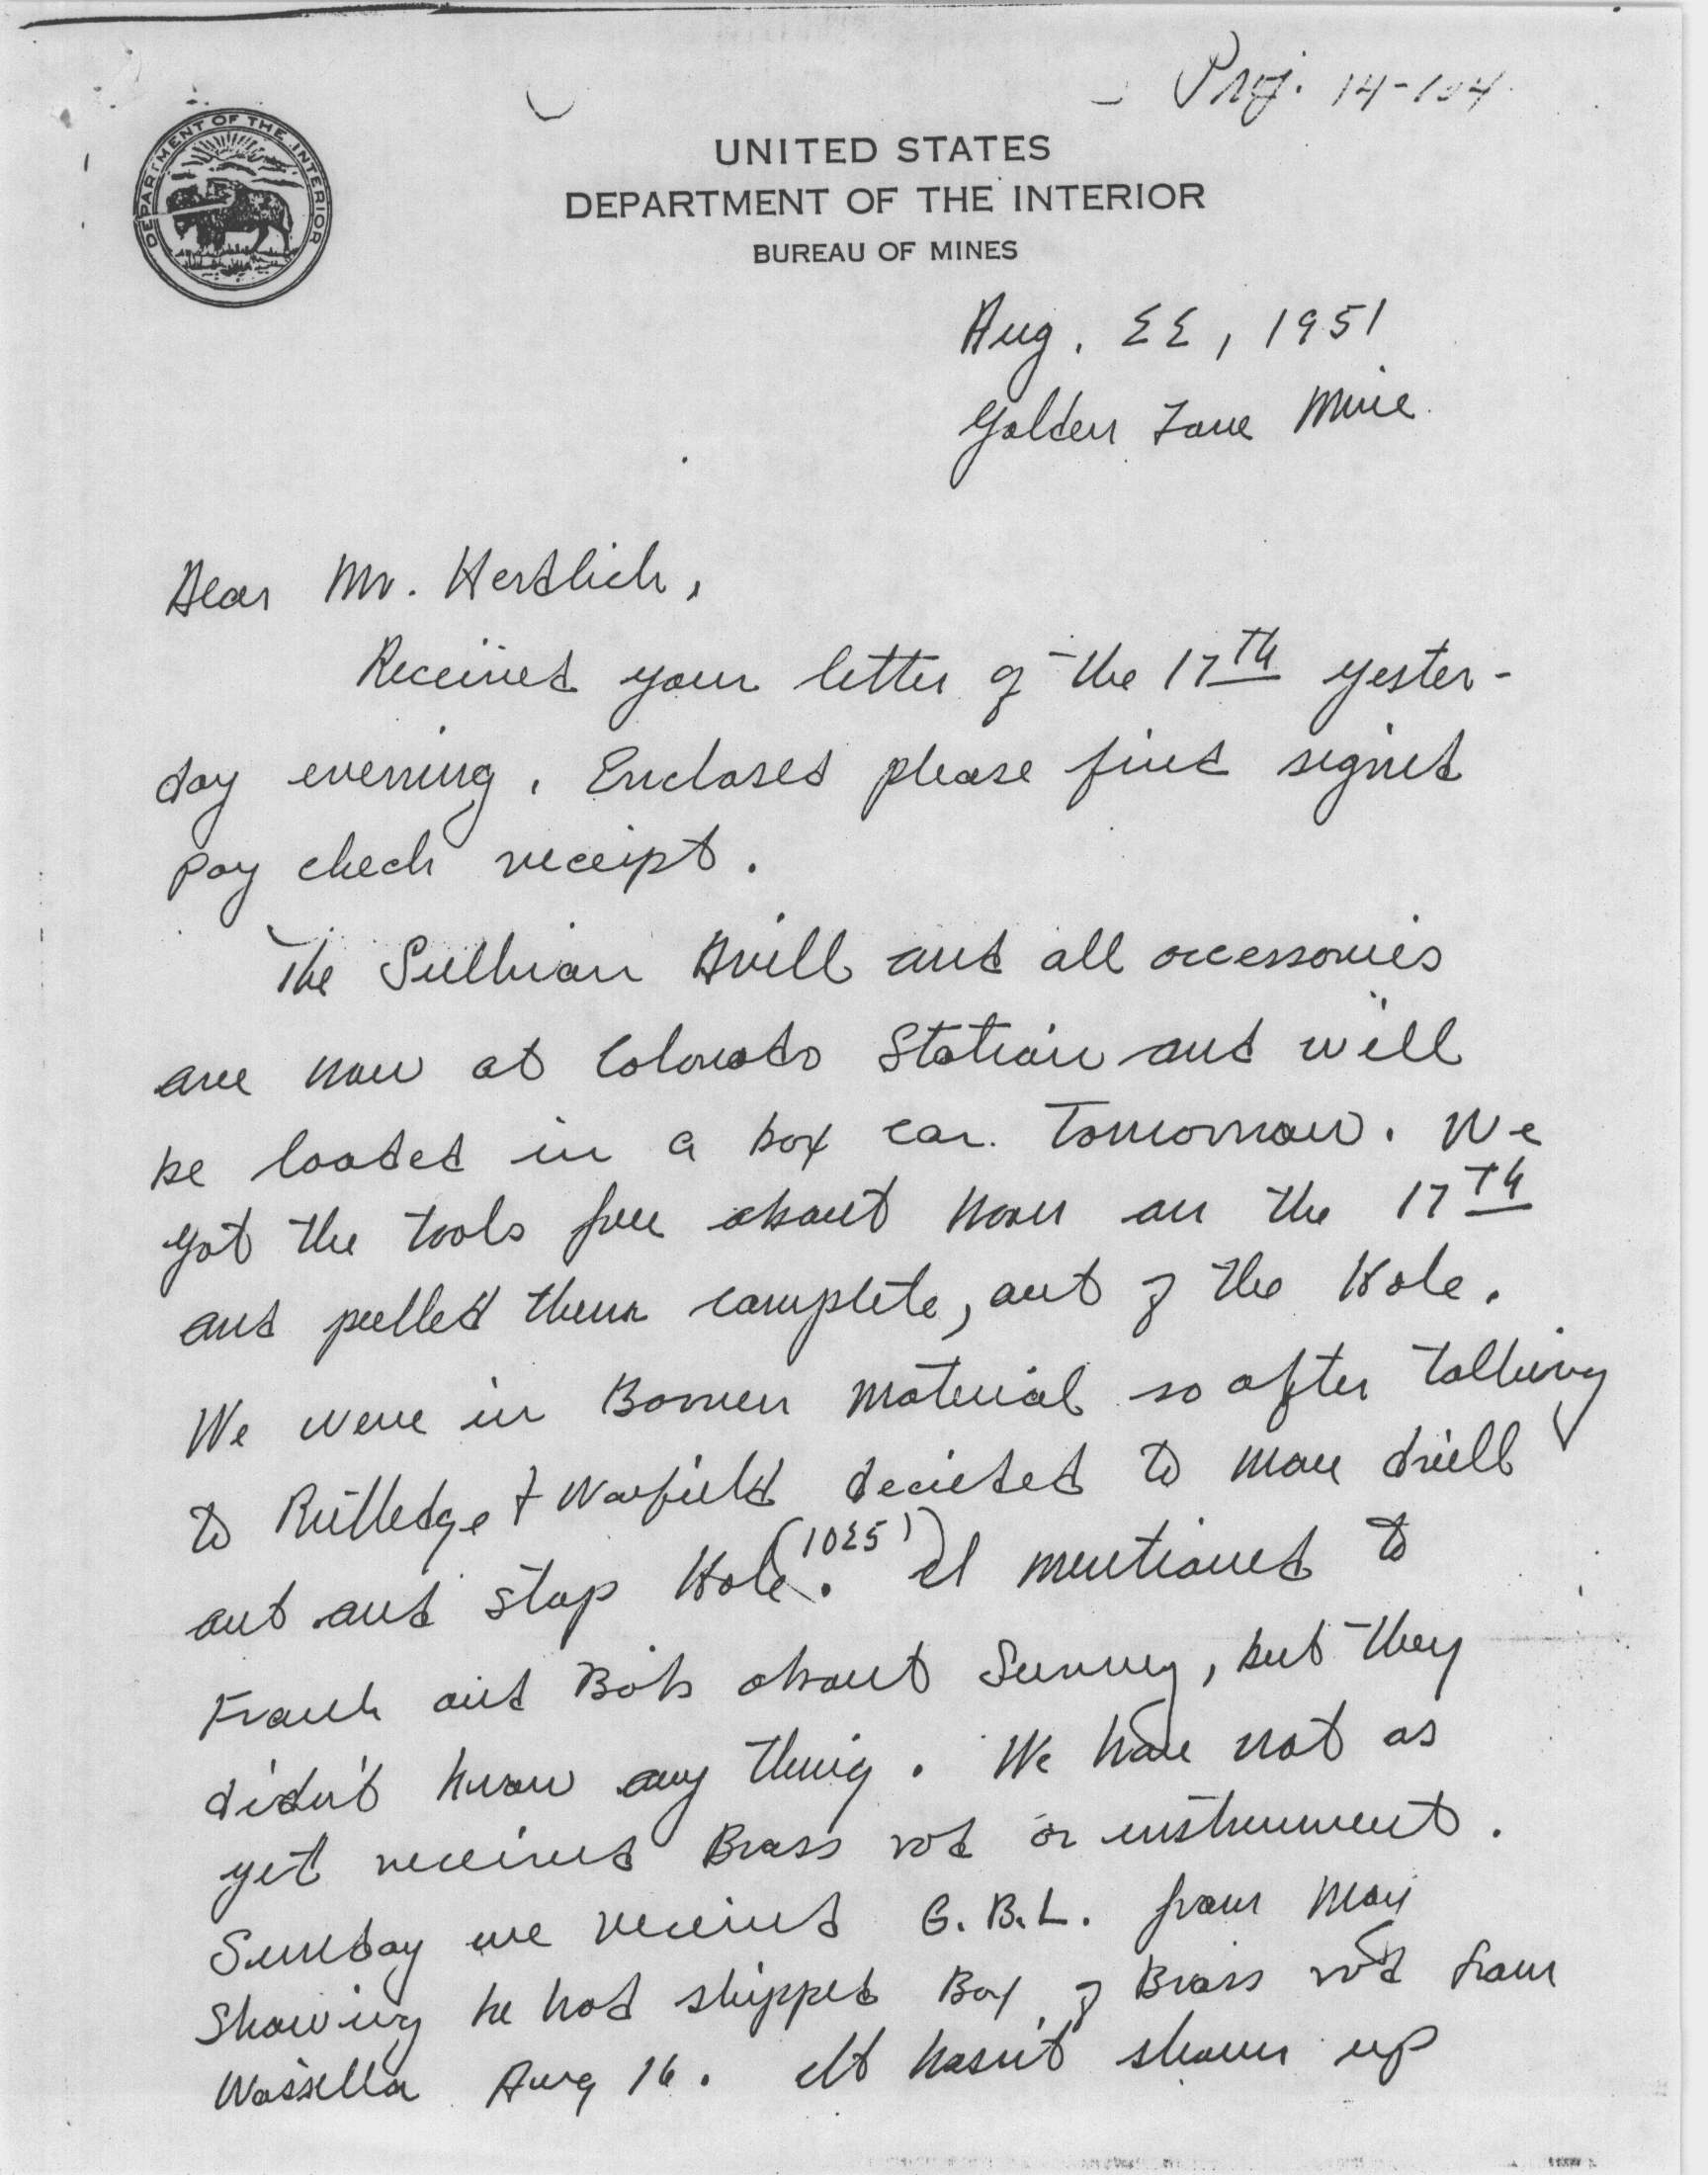 Proj. 14-104
DEPARTMENT OF THE INTERIOR
UNITED STATES
DEPARTMENT OF THE INTERIOR
BUREAU OF MINES
Aug. 22, 1951
Golden Zone Mine.
Dear Mr. Herdlick,
Received your letter of the 17th yester-
day evening. Enclosed please find signed
pay check receipt.
The Sullivan Drill and all accessories
are now at Colorado Station and will
be loaded in a box car tomorrow. We
got the tools free about noon on the 17th
and pulled them complete, out of the Hole.
We were in Barren material so after talking
to Rutledge & Warfield decided to move drill
out and stop Hole (1025'). I mentioned to
Frank and Bob about Survey, but they
didn't know any thing. We have not as
yet received Brass rod or instrument.
Sunday we received G.B.L. from May
Showing he had shipped Box of Brass rod from
Wassilla Aug 16. It hasn't shown up